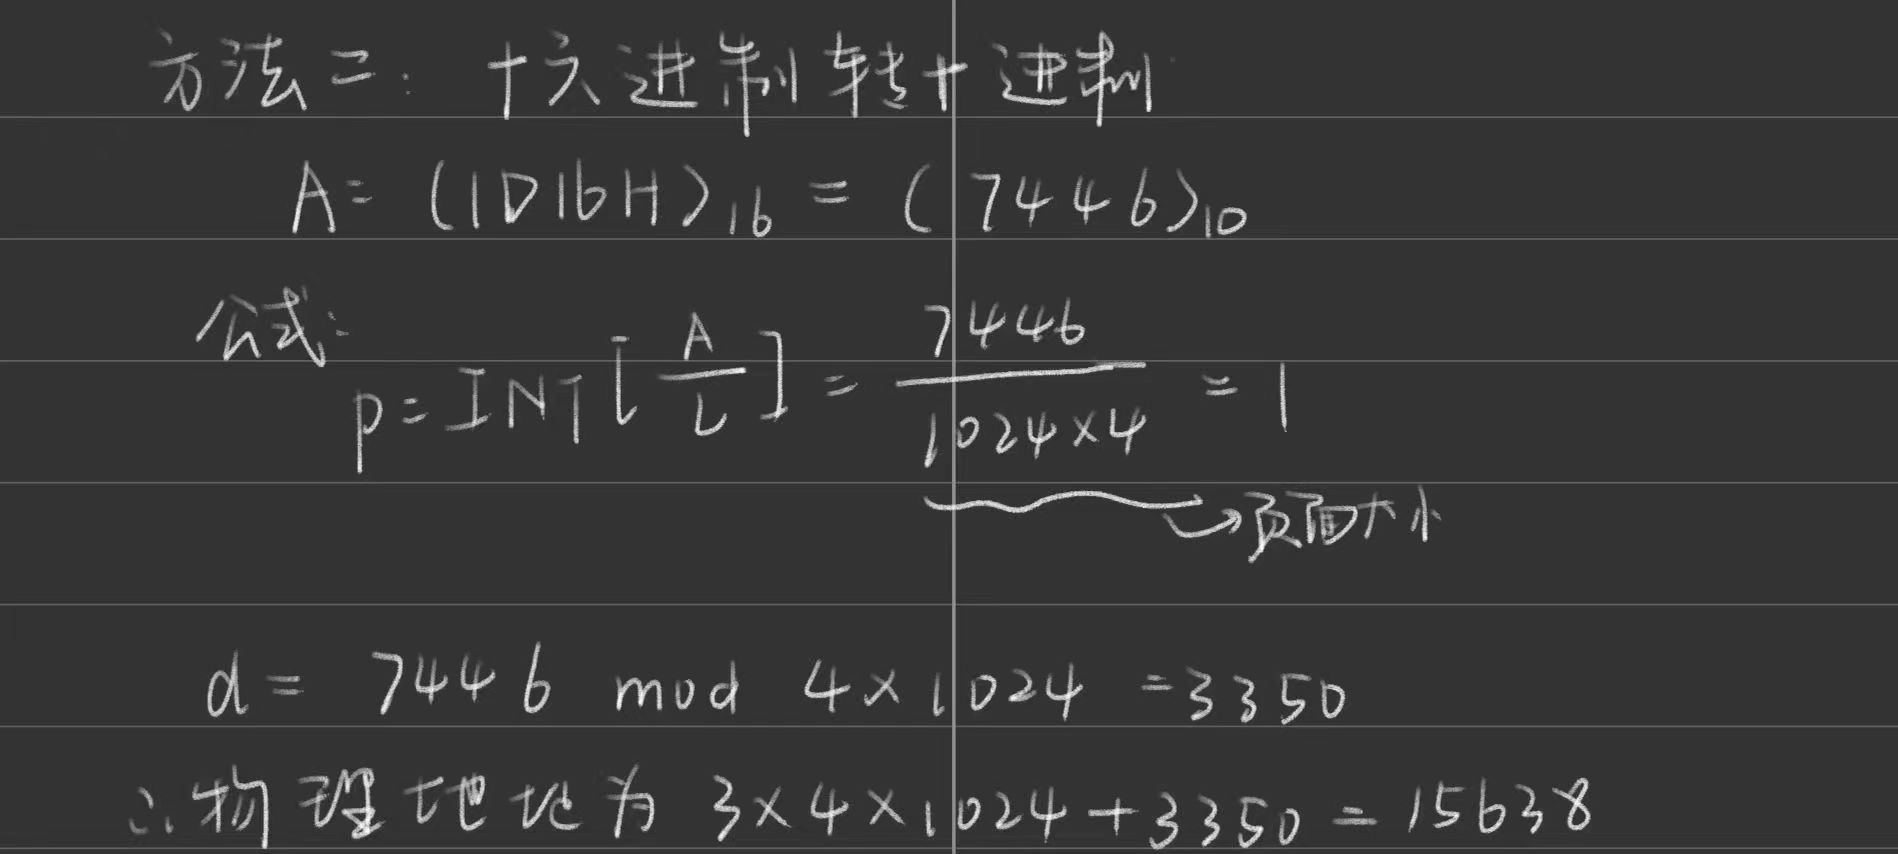 方法二: 十六进制转十进制
A= (1D16H)₁₆ = (7446)₁₀
公式:
p=INT[A/L] = 7446/1024×4 = 1
页面大小
d= 7446 mod 4×1024 =3350
∴物理地址为 3×4×1024+3350=15638